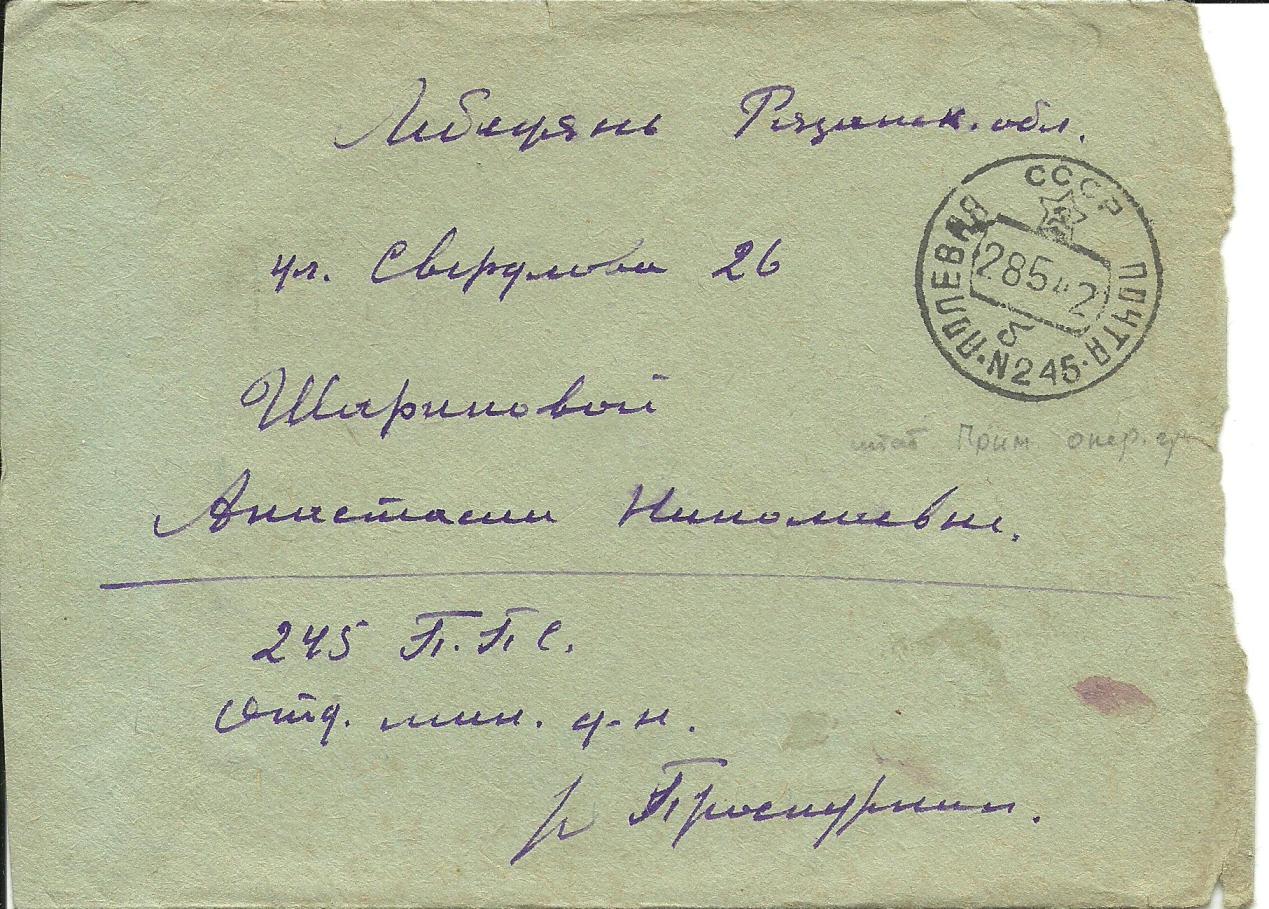 Лебедянь Рязанск. обл.
ул. Свердлова 26
СССР
ПОЛЕВАЯ ПОЧТА
28 5 42
б
N 245
Шариповой
штаб Прим опер. гр
Анастасии Николаевне.
245 П.П.С.
Отд. мин. д-н.
Проскурнин.